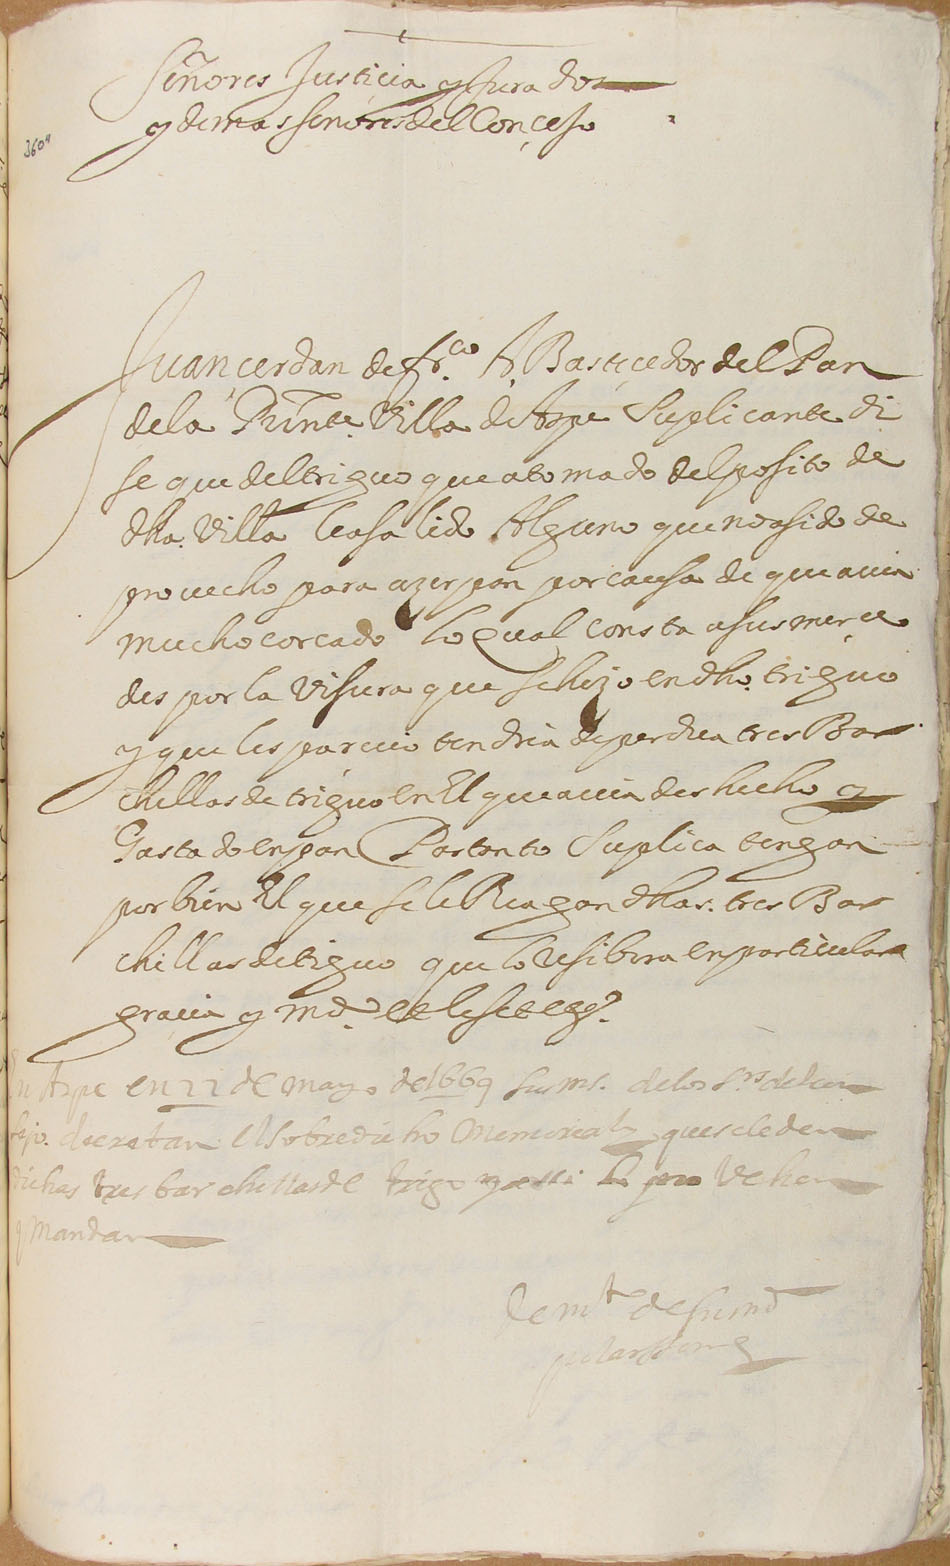 Señores Justicia y Jurados
y demas señores del Conçejo
360
Juan çerdan de fr.co A Basteçedor del Pan
de la Pnte. Villa de Aspe Suplicante di
se que del triguo que a tomado del posito de
dha. Villa lea salido Alguno que no a sido de
provecho para azer pan por causa de que auia
mucho corcado lo qual consta a sus merçe
des por la visura que se hizo en dho. triguo
y que les parecio tendria de perdua tres Bar
chillas de triguo en El que auia deshecho y
Gastado en pan Por tanto Suplica tengan
por bien El que se le Reagan dhas. tres Bar
chillas de tiguo que lo Resibira en particular
graçia y md.
En Aspe en 22 de mayo de 1669 sus ms. de los s.res del con
sejo. decretan el sobredicho Memorial que se le den
dichas tres barchillas de trigo y assi lo pro Vehen
y Mandan
De m.to de su md